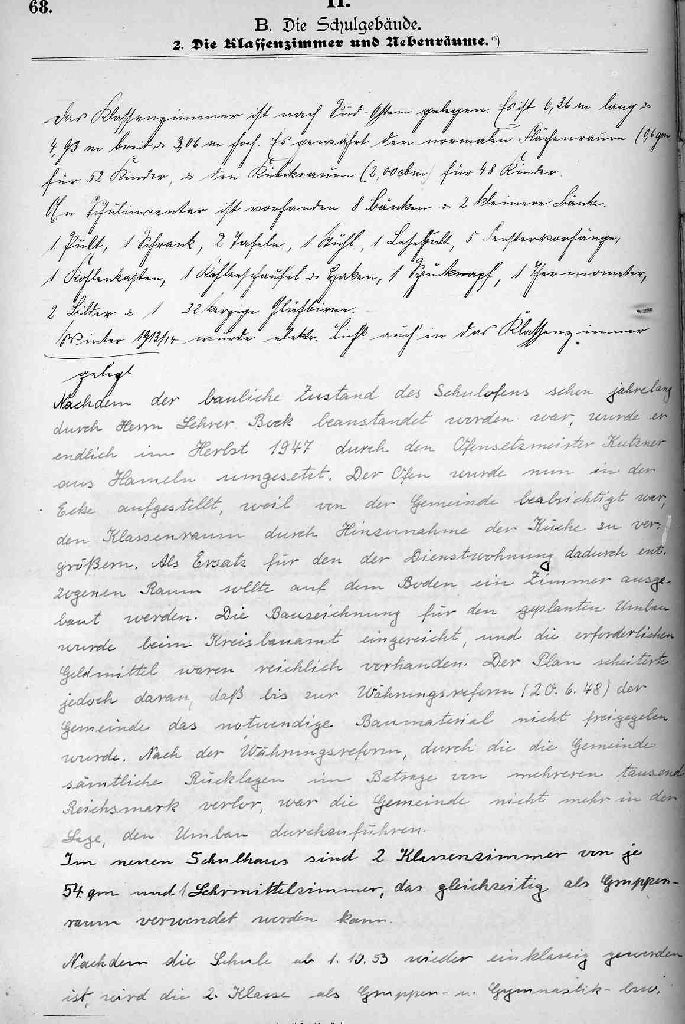 68.
II.
B. Die Schulgebäude.
2. Die Klassenzimmer und Nebenräume.*)
Das Klassenzimmer ist nach Süd Osten gelegen. Es ist 6,26 m lang u.
4,93 m breit u. 3,06 m hoch. Es gewährt den normalen Flächenraum (0,6 qm
für 52 Kinder, u. den Kubikraum (2,00 cbm) für 48 Kinder.
An Schulinventar ist vorhanden 8 Bänke u. 2 kleinere Bänke.
1 Pult, 1 Schrank, 2 Tafeln, 1 Stuhl, 1 Lesepult, 5 Fenstervorhänge,
1 Kohlenkasten, 1 Kohlenschaufel u. Haken, 1 Spucknapf, 1 Thermometer,
2 Bilder u. 1 32 kerzige Glühbirne.
Winter 1913/14 wurde elektr. Licht auch in das Klassenzimmer
gelegt
Nachdem der bauliche Zustand des Schulofens schon jahrelang
durch Herrn Lehrer Bock beanstandet worden war, wurde er
endlich im Herbst 1947 durch den Ofensetzmeister Kutzner
aus Hameln umgesetzt. Der Ofen wurde nun in der
Ecke aufgestellt, weil von der Gemeinde beabsichtigt war,
den Klassenraum durch Hinzunahme der Küche zu ver-
größern. Als Ersatz für den der Dienstwohnung dadurch ent-
zogenen Raum sollte auf dem Boden ein Zimmer ausge-
baut werden. Die Bauzeichnung für den geplanten Umbau
wurde beim Kreisbauamt eingereicht, und die erforderlichen
Geldmittel waren reichlich vorhanden. Der Plan scheiterte
jedoch daran, daß bis zur Währungsreform (20.6.48) der
Gemeinde das notwendige Baumaterial nicht freigegeben
wurde. Nach der Währungsreform, durch die die Gemeinde
sämtliche Rücklagen im Betrage von mehreren tausend
Reichsmark verlor, war die Gemeinde nicht mehr in der
Lage, den Umbau durchzuführen.
Im neuen Schulhaus sind 2 Klassenzimmer von je
54 qm und 1 Lehrmittelzimmer, das gleichzeitig als Gruppen-
raum verwendet werden kann.
Nachdem die Schule ab 1.10.53 wieder einklassig geworden
ist, wird die 2. Klasse als Gruppen- u. Gymnastik- bzw.